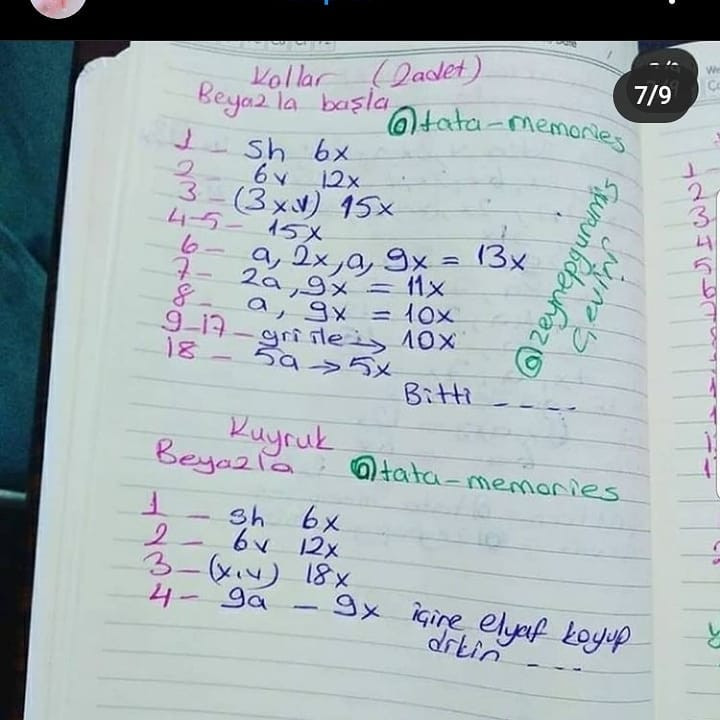 7/9
Kollar (2adet)
Beyazla başla
@tata-memories
1 - sh 6x
2 - 6v 12x
3 - (3x,v) 15x
4-5 - 15x
6 - a, 2x, a, 9x = 13x
7 - 2a, 9x = 11x
8 - a, 9x = 10x
9-17 - gri ile → 10x
18 - 5a → 5x
Bitti ----
Kuyruk
Beyazla : @tata-memories
1 - sh 6x
2 - 6v 12x
3 - (x,v) 18x
4 - 9a - 9x içine elyaf koyup
dikin ---